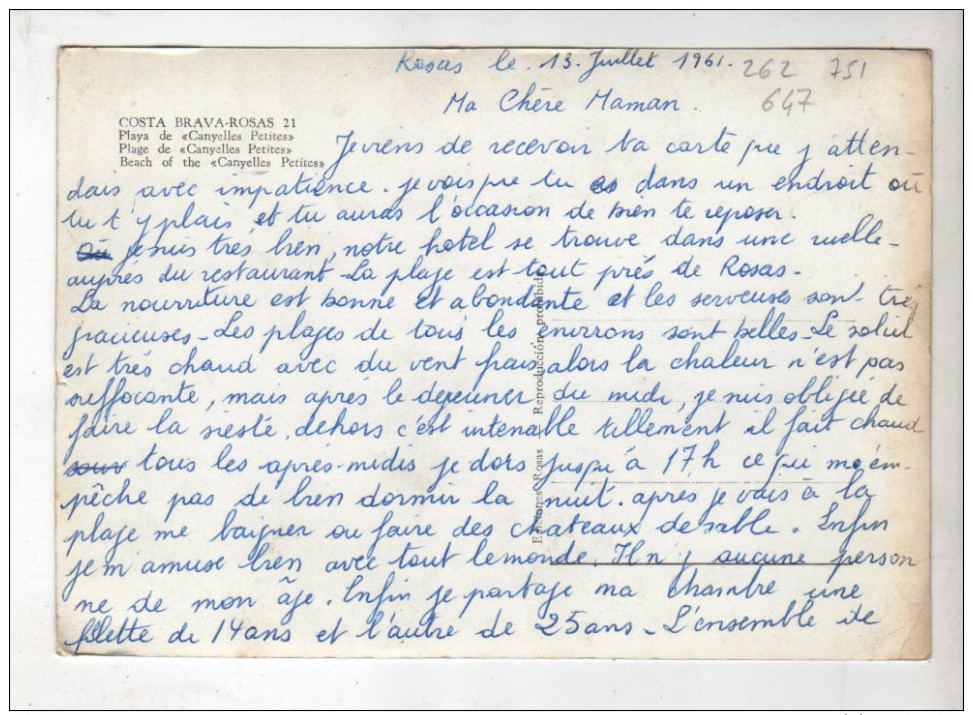 Rosas le 13 Juillet 1961.
262 751
647
Ma Chère Maman.
COSTA BRAVA-ROSAS 21
Playa de «Canyelles Petites»
Plage de «Canyelles Petites»
Beach of the «Canyelles Petites»
Je viens de recevoir ta carte que j'atten-
dais avec impatience. je vois que tu es dans un endroit où
tu t'y plais et tu auras l'occasion de bien te reposer.
je suis très bien, notre hotel se trouve dans une ruelle
auprès du restaurant. La plage est tout près de Rosas.
La nourriture est bonne et abondante et les serveuses sont très
gracieuses. Les plages de tous les environs sont belles. Le soleil
est très chaud avec du vent frais alors la chaleur n'est pas
suffocante, mais après le dejeuner du midi, je suis obligée de
faire la sieste. dehors c'est intenable tellement il fait chaud
tous les après-midis je dors jusqu'à 17h ce qui m'em-
pêche pas de bien dormir la nuit. après je vais à la
plage me baigner ou faire des chateaux de sable. Enfin
je m'amuse bien avec tout le monde. Il n'y aucune person
ne de mon âge. Enfin je partage ma chambre une
fillette de 14 ans et l'autre de 25 ans. L'ensemble de
Ediciones Rosas - Reproducción prohibida